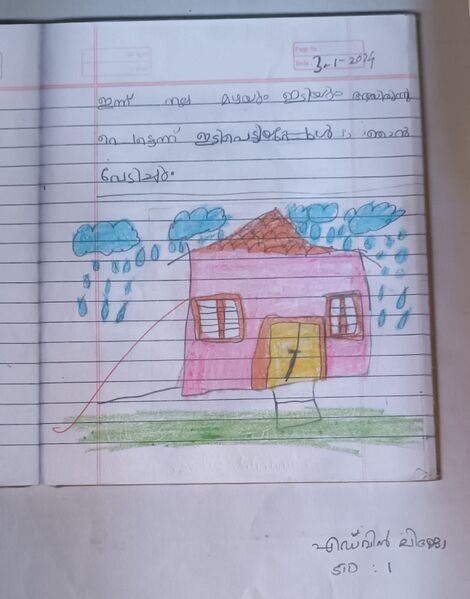 Page No
Date 3-1-2024
ഇന്ന് നല്ല മഴയും ഇടിയും
ഇടിവെട്ടിയപ്പോൾ ഞാൻ
പേടിച്ചു.
എഡ്വിൻ ലിജോ
STD : 1